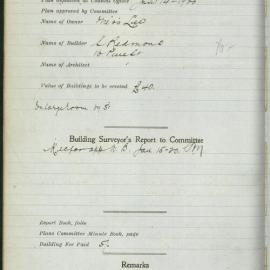 Plan deposited at Council Office Jan 14-1920
Plan approved by Committee
Name of Owner Miss Lee
Name of Builder S. Redmond
Name of Architect
Value of Buildings to be erected £40.
Enlarge room
Building Surveyor's Report to Committee
Jan 15-20
Report Book, folio
Plans Committee Minute Book, page
Building Fee Paid 5/.
Remarks